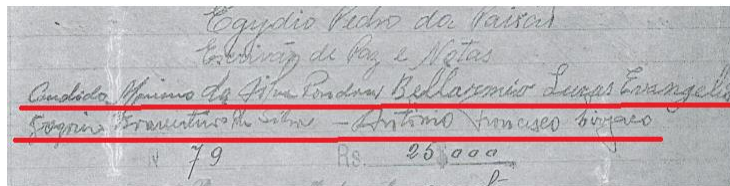 Egydio Pedro da Paixão
Escrivão de Paz e Notas
Candido Mariano da Silva Rondon Bellarmino Lucas Evangelis
Boaventura da Silva – Antonio Francisco
N 79 Rs. 25$000